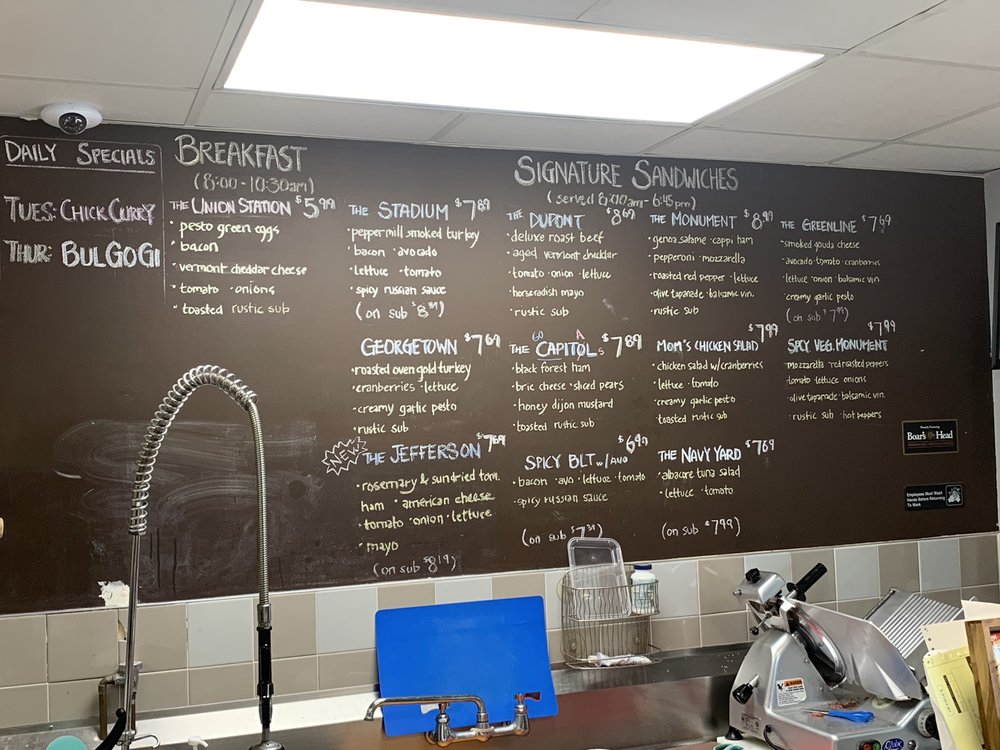 DAILY SPECIALS
TUES: CHICK CURRY
THUR: BULGOGI
BREAKFAST
(8:00 - 10:30am)
THE UNION STATION $5.99
• pesto green eggs
• bacon
• vermont cheddar cheese
• tomato • onions
• toasted rustic sub
SIGNATURE SANDWICHES
(served 8:00am - 6:45pm)
THE STADIUM $7.89
• peppermill smoked turkey
• bacon • avocado
• lettuce • tomato
• spicy russian sauce
(on sub $8.39)
THE DUPONT $8.69
• deluxe roast beef
• aged vermont cheddar
• tomato • onion • lettuce
• horseradish mayo
• rustic sub
THE MONUMENT $8.99
• genoa salame • cappi ham
• pepperoni • mozzarella
• roasted red pepper • lettuce
• olive tapanade • balsamic vin.
• rustic sub
THE GREENLINE $7.69
• smoked gouda cheese
• avocado • tomato • cranberries
• lettuce • onion • balsamic vin.
• creamy garlic pesto
(on sub $7.99)
GEORGETOWN $7.69
• roasted oven gold turkey
• cranberries • lettuce
• creamy garlic pesto
• rustic sub
GO
A
THE CAPITOLS $7.89
• black forest ham
• brie cheese • sliced pears
• honey dijon mustard
• toasted rustic sub
MOM'S CHICKEN SALAD $7.99
• chicken salad w/cranberries
• lettuce • tomato
• creamy garlic pesto
• toasted rustic sub
SPCY VEG. MONUMENT $7.99
• mozzarella • red roasted peppers
• tomato • lettuce • onions
• olive tapanade • balsamic vin.
• rustic sub • hot peppers
NEW
THE JEFFERSON $7.69
• rosemary & sundried tom. ham
• american cheese
• tomato • onion • lettuce
• mayo
(on sub $8.19)
SPICY BLT w/AVO $6.99
• bacon • avo • lettuce • tomato
• spicy russian sauce
(on sub $7.39)
THE NAVY YARD $7.69
• albacore tuna salad
• lettuce • tomato
(on sub $7.99)
Boar's Head
Employees Must Wash
Hands Before Returning
To Work
WARNING
Globe